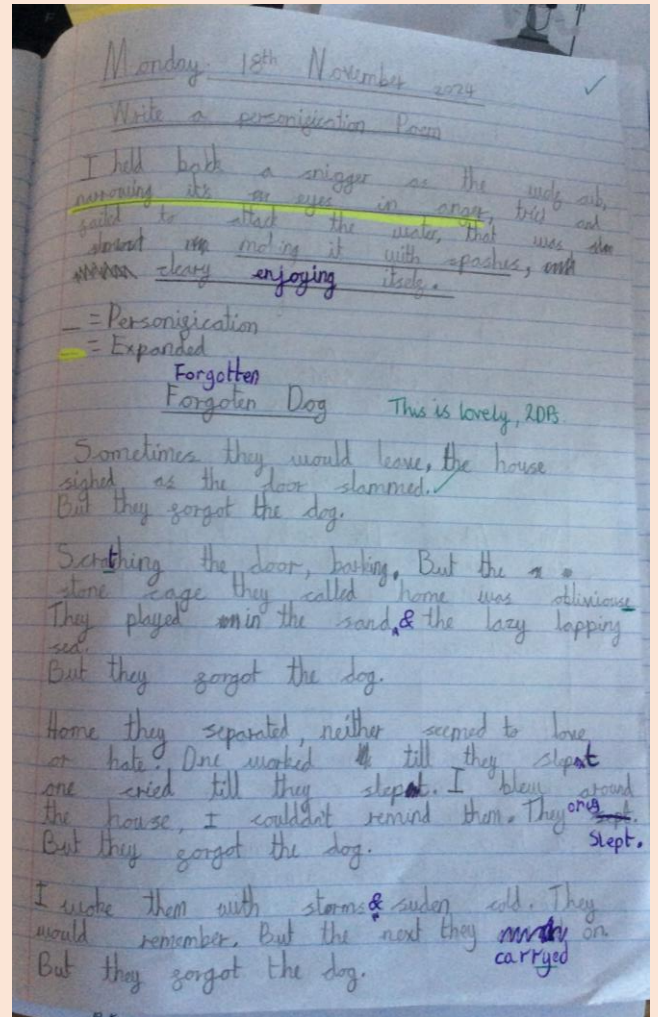 Monday 18th November 2024
Write a personigication Poem
I held back a snigger as the wolf cub,
narrowing it's eyes in anger, tried and
gailed to attack the water, that was
moking it with spashes,
cleary enjoying itself.
_ = Personigication
= Expanded
Forgotten
Forgoten Dog This is lovely, 2DPs
Sometimes they would leave, the house
sighed as the door slammed.
But they gorgot the dog.
Scratching the door, barking. But the
stone cage they called home was obliviouse
They played in the sand, & the lazy lapping
sea.
But they gorgot the dog.
Home they separated, neither seemed to love
or hate. One worked till they slept
one cried till they slept. I blew around
the house, I couldn't remind them. They only
slept.
But they gorgot the dog.
I woke them with storms & suden cold. They
would remember. But the next they on.
carryed
But they gorgot the dog.